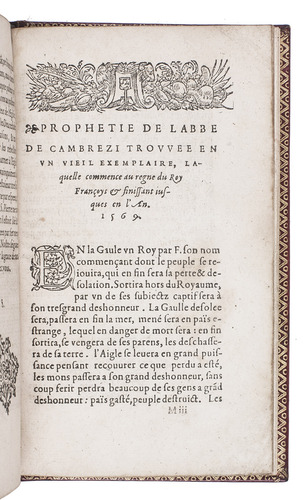 PROPHETIE DE LABBE
DE CAMBREZI TROVVEE EN
VN VIEIL EXEMPLAIRE, LA-
quelle commence au regne du Roy
Françoys & finissant ius-
ques en l'An.
1569.
EN la Gaule vn Roy par F. son nom
commençant dont le peuple se re-
iouita, qui en fin sera sa perte & de-
solation. Sortira hors du Royaume,
par vn de ses subiectz captif sera à
son tresgrand deshonneur. La Gaulle desolee
sera, passera en fin la mer, mené sera en païs e-
strange, lequel en danger de mort sera: en fin
sortira, se vengera de ses parens, les deschasse-
ra de sa terre. l'Aigle se leuera en grand puis-
sance pensant recouurer ce que perdu a esté,
les mons passera a son grand deshonneur, sans
coup ferir perdra beaucoup de ses gens a grãd
deshonneur: païs gasté, peuple destruict. Les
M iii